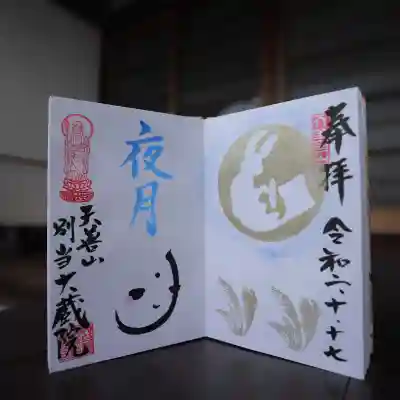 奉拝
令和六・十・十七
夜月
天善山
別当大蔵院